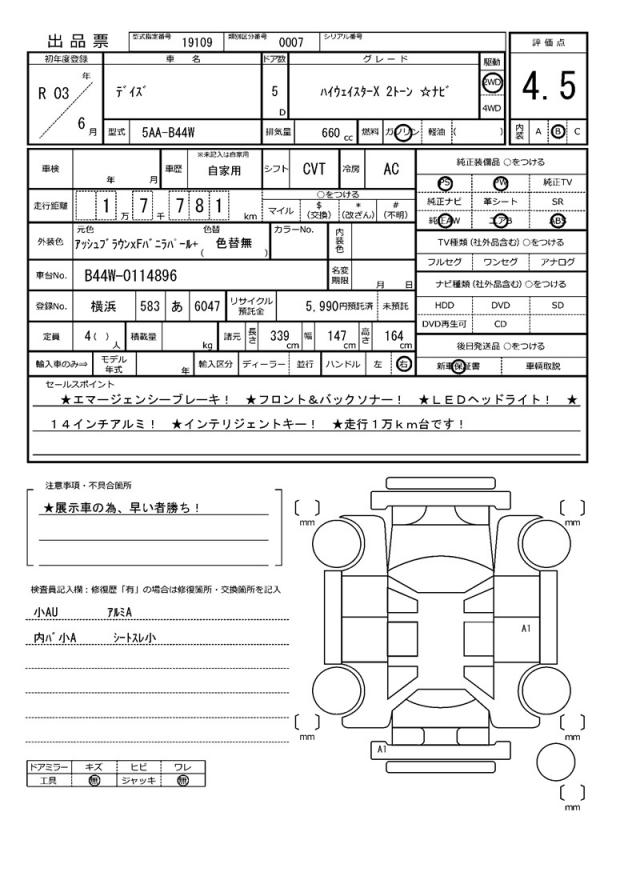 出品票 型式指定番号 19109 類別区分番号 0007 シリアル番号
評価点
4.5
内装 A B C
初年度登録 車名 ドア数 グレード 駆動
R 03 年 6 月 デイズ 5 D ハイウェイスターX 2トーン ☆ナビ 2WD 4WD
型式 5AA-B44W 排気量 660 cc 燃料 ガソリン 軽油 ( )
車検 年 月 車歴 ※未記入は自家用 自家用 シフト CVT 冷房 AC
走行距離 1 万 7 千 7 8 1 km
○をつける
マイル $(交換) *(改ざん) #(不明)
外装色 元色 アッシュブラウンxFバニラパール+ 色替 ( 色替無 ) カラーNo. 内装色
車台No. B44W-0114896 名変期限 月 日
登録No. 横浜 583 あ 6047 リサイクル預託金 5,990円預託済 未預託
定員 4( ) 人 積載量 kg 諸元 長さ 339 cm 幅 147 cm 高さ 164 cm
輸入車のみ⇒ モデル年式 年 輸入区分 ディーラー 並行 ハンドル 左 右
純正装備品 ○をつける
PS PW 純正TV
純正ナビ 革シート SR
純正AW エアB ABS
TV種類(社外品含む)○をつける
フルセグ ワンセグ アナログ
ナビ種類(社外品含む)○をつける
HDD DVD SD
DVD再生可 CD
後日発送品 ○をつける
新車保証書 車輌取説
セールスポイント
★エマージェンシーブレーキ! ★フロント&バックソナー! ★LEDヘッドライト! ★
14インチアルミ! ★インテリジェントキー! ★走行1万km台です!
注意事項・不具合箇所
★展示車の為、早い者勝ち!
検査員記入欄:修復歴「有」の場合は修復箇所・交換箇所を記入
小AU アルミA
内バ小A シートスレ小
ドアミラー キズ ヒビ ワレ
工具 無 ジャッキ 無
[ ] mm
[ ] mm
A1
[ ] mm
[ ] mm
A1
[ ] mm